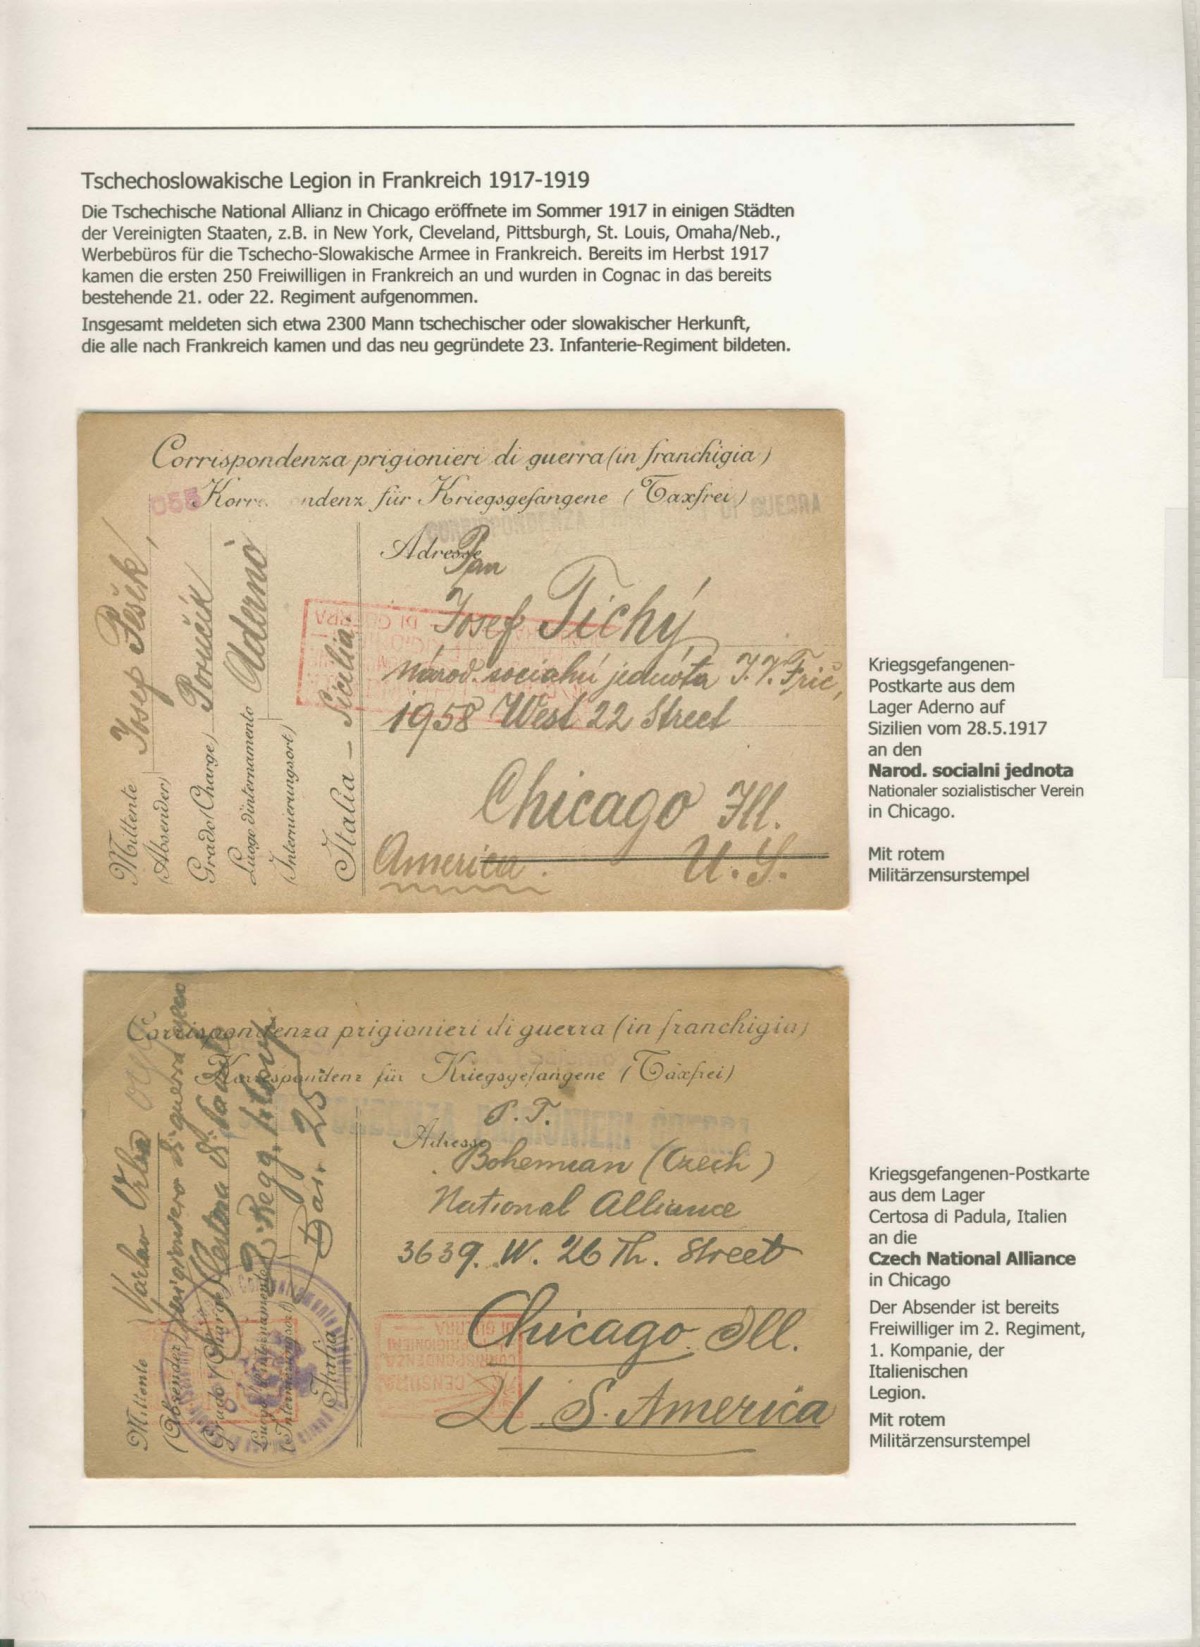 Tschechoslowakische Legion in Frankreich 1917-1919
Die Tschechische National Allianz in Chicago eröffnete im Sommer 1917 in einigen Städten
der Vereinigten Staaten, z.B. in New York, Cleveland, Pittsburgh, St. Louis, Omaha/Neb.,
Werbebüros für die Tschecho-Slowakische Armee in Frankreich. Bereits im Herbst 1917
kamen die ersten 250 Freiwilligen in Frankreich an und wurden in Cognac in das bereits
bestehende 21. oder 22. Regiment aufgenommen.
Insgesamt meldeten sich etwa 2300 Mann tschechischer oder slowakischer Herkunft,
die alle nach Frankreich kamen und das neu gegründete 23. Infanterie-Regiment bildeten.
Corrispondenza prigionieri di guerra (in franchigia)
Korrespondenz für Kriegsgefangene (Taxfrei)
CORRISPONDENZA PRIGIONIERI DI GUERRA
Adresse
Pan
Josef Tichý
Národ. socialní jednóta J. V. Frič,
1958 West 22 Street
Chicago Ill.
America. U. S.
Mittente Josef Pešík,
(Absender)
Grado (Charge) Poručík
Luogo d'internamento Adernò
(Internierungsort)
Italia - Sicilia
Kriegsgefangenen-
Postkarte aus dem
Lager Aderno auf
Sizilien vom 28.5.1917
an den
Narod. socialni jednota
Nationaler sozialistischer Verein
in Chicago.
Mit rotem
Militärzensurstempel
Corrispondenza prigionieri di guerra (in franchigia)
Korrespondenz für Kriegsgefangene (Taxfrei)
CORRISPONDENZA PRIGIONIERI GUERRA
P. T.
Adresse
Bohemian (Czech)
National Alliance
3639. W. 26 Th. Street
Chicago Ill.
U. S. America
Mittente
(Absender) prigioniero di guerra
Grado (Charge)
Luogo d'internamento
(Internierungsort)
Italia
CENSURA
CORRISPONDENZA
PRIGIONIERI
DI GUERRA
Kriegsgefangenen-Postkarte
aus dem Lager
Certosa di Padula, Italien
an die
Czech National Alliance
in Chicago
Der Absender ist bereits
Freiwilliger im 2. Regiment,
1. Kompanie, der
Italienischen
Legion.
Mit rotem
Militärzensurstempel